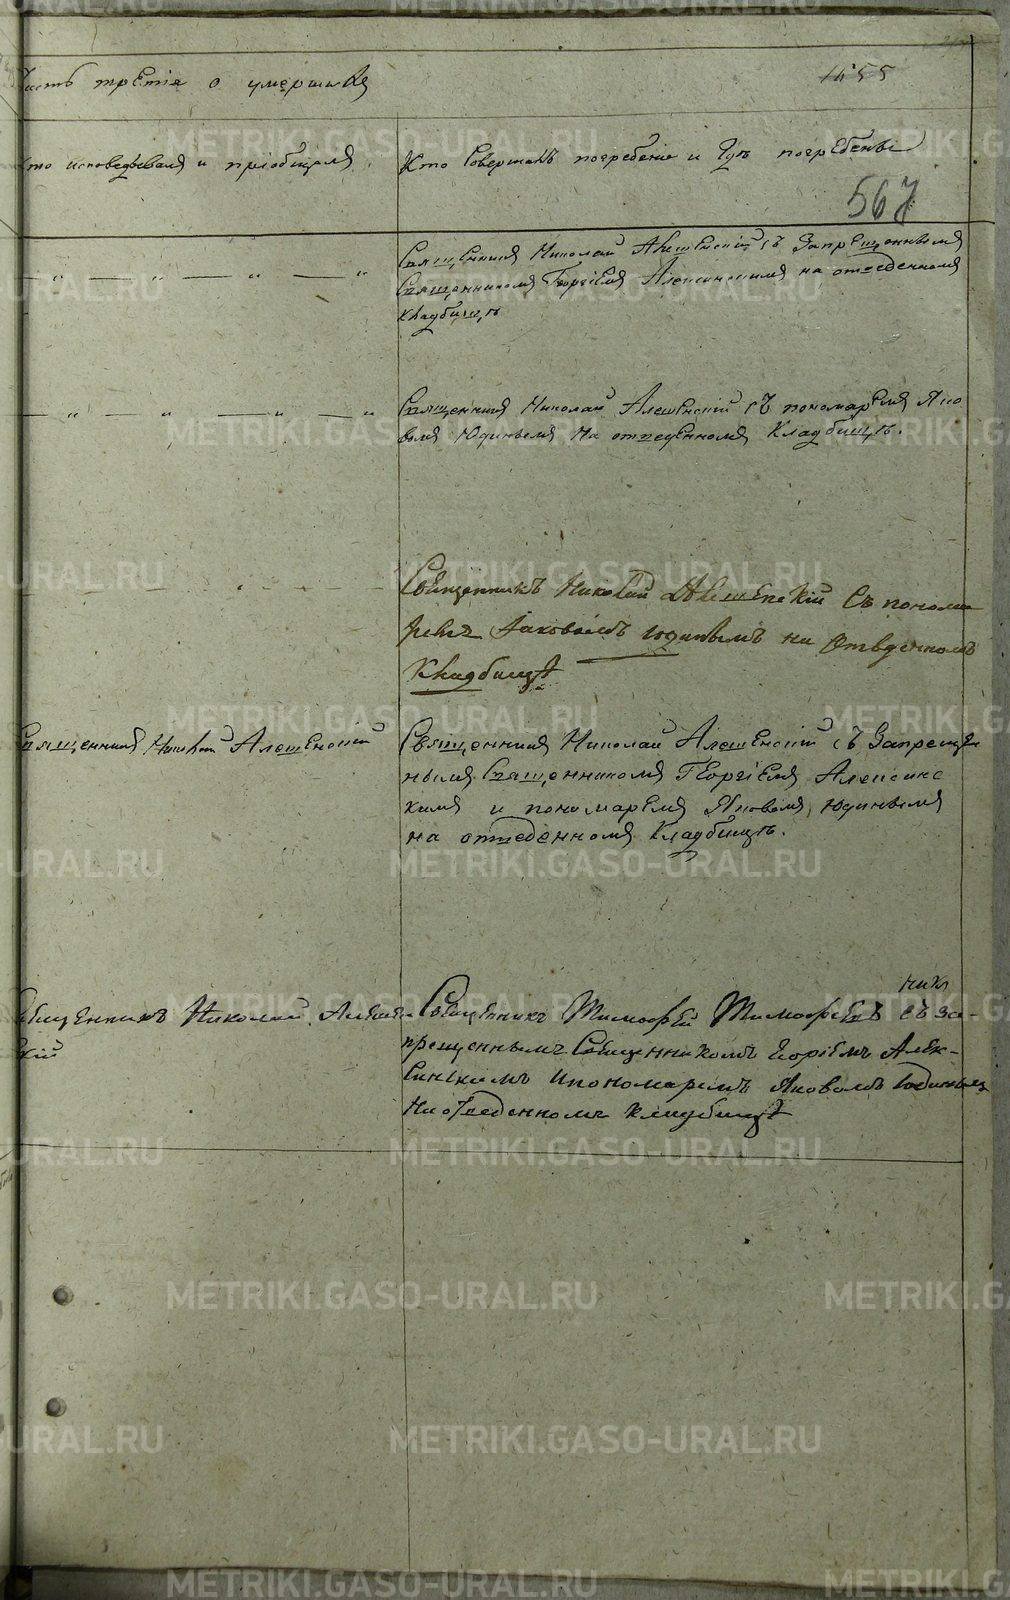 Часть третія о умершихъ
1455
Кто исповѣдывалъ и пріобщалъ
Кто Совершалъ погребеніе и Гдѣ погребены
567
Священникъ Николай Алешенскій съ Запрещеннымъ
Священникомъ Георгіемъ Алексинскимъ на отведенномъ
кладбищѣ
Священникъ Николай Алешенскій съ пономаремъ Яко
вомъ Юдинымъ на отведенномъ Кладбищѣ.
Священникъ Николай Алешенскій Съ понома
ремъ Іаковомъ Юдинымъ на Отведенномъ
Кладбищѣ
Священникъ Николай Алешенскій
Священникъ Николай Алешенскій съ Запрещен
нымъ Священникомъ Георгіемъ Алексинс
кимъ и пономаремъ Яковомъ Юдинымъ
на отведенномъ Кладбищѣ.
Священникъ Николай Алешен
скій
Священникъ Тимофей Тимофеевъ съ за-
прещеннымъ Священникомъ Георгіемъ Алек-
синскимъ и пономаремъ Яковомъ Юдинымъ
На отведенномъ кладбищѣ
METRIKI.GASO-URAL.RU